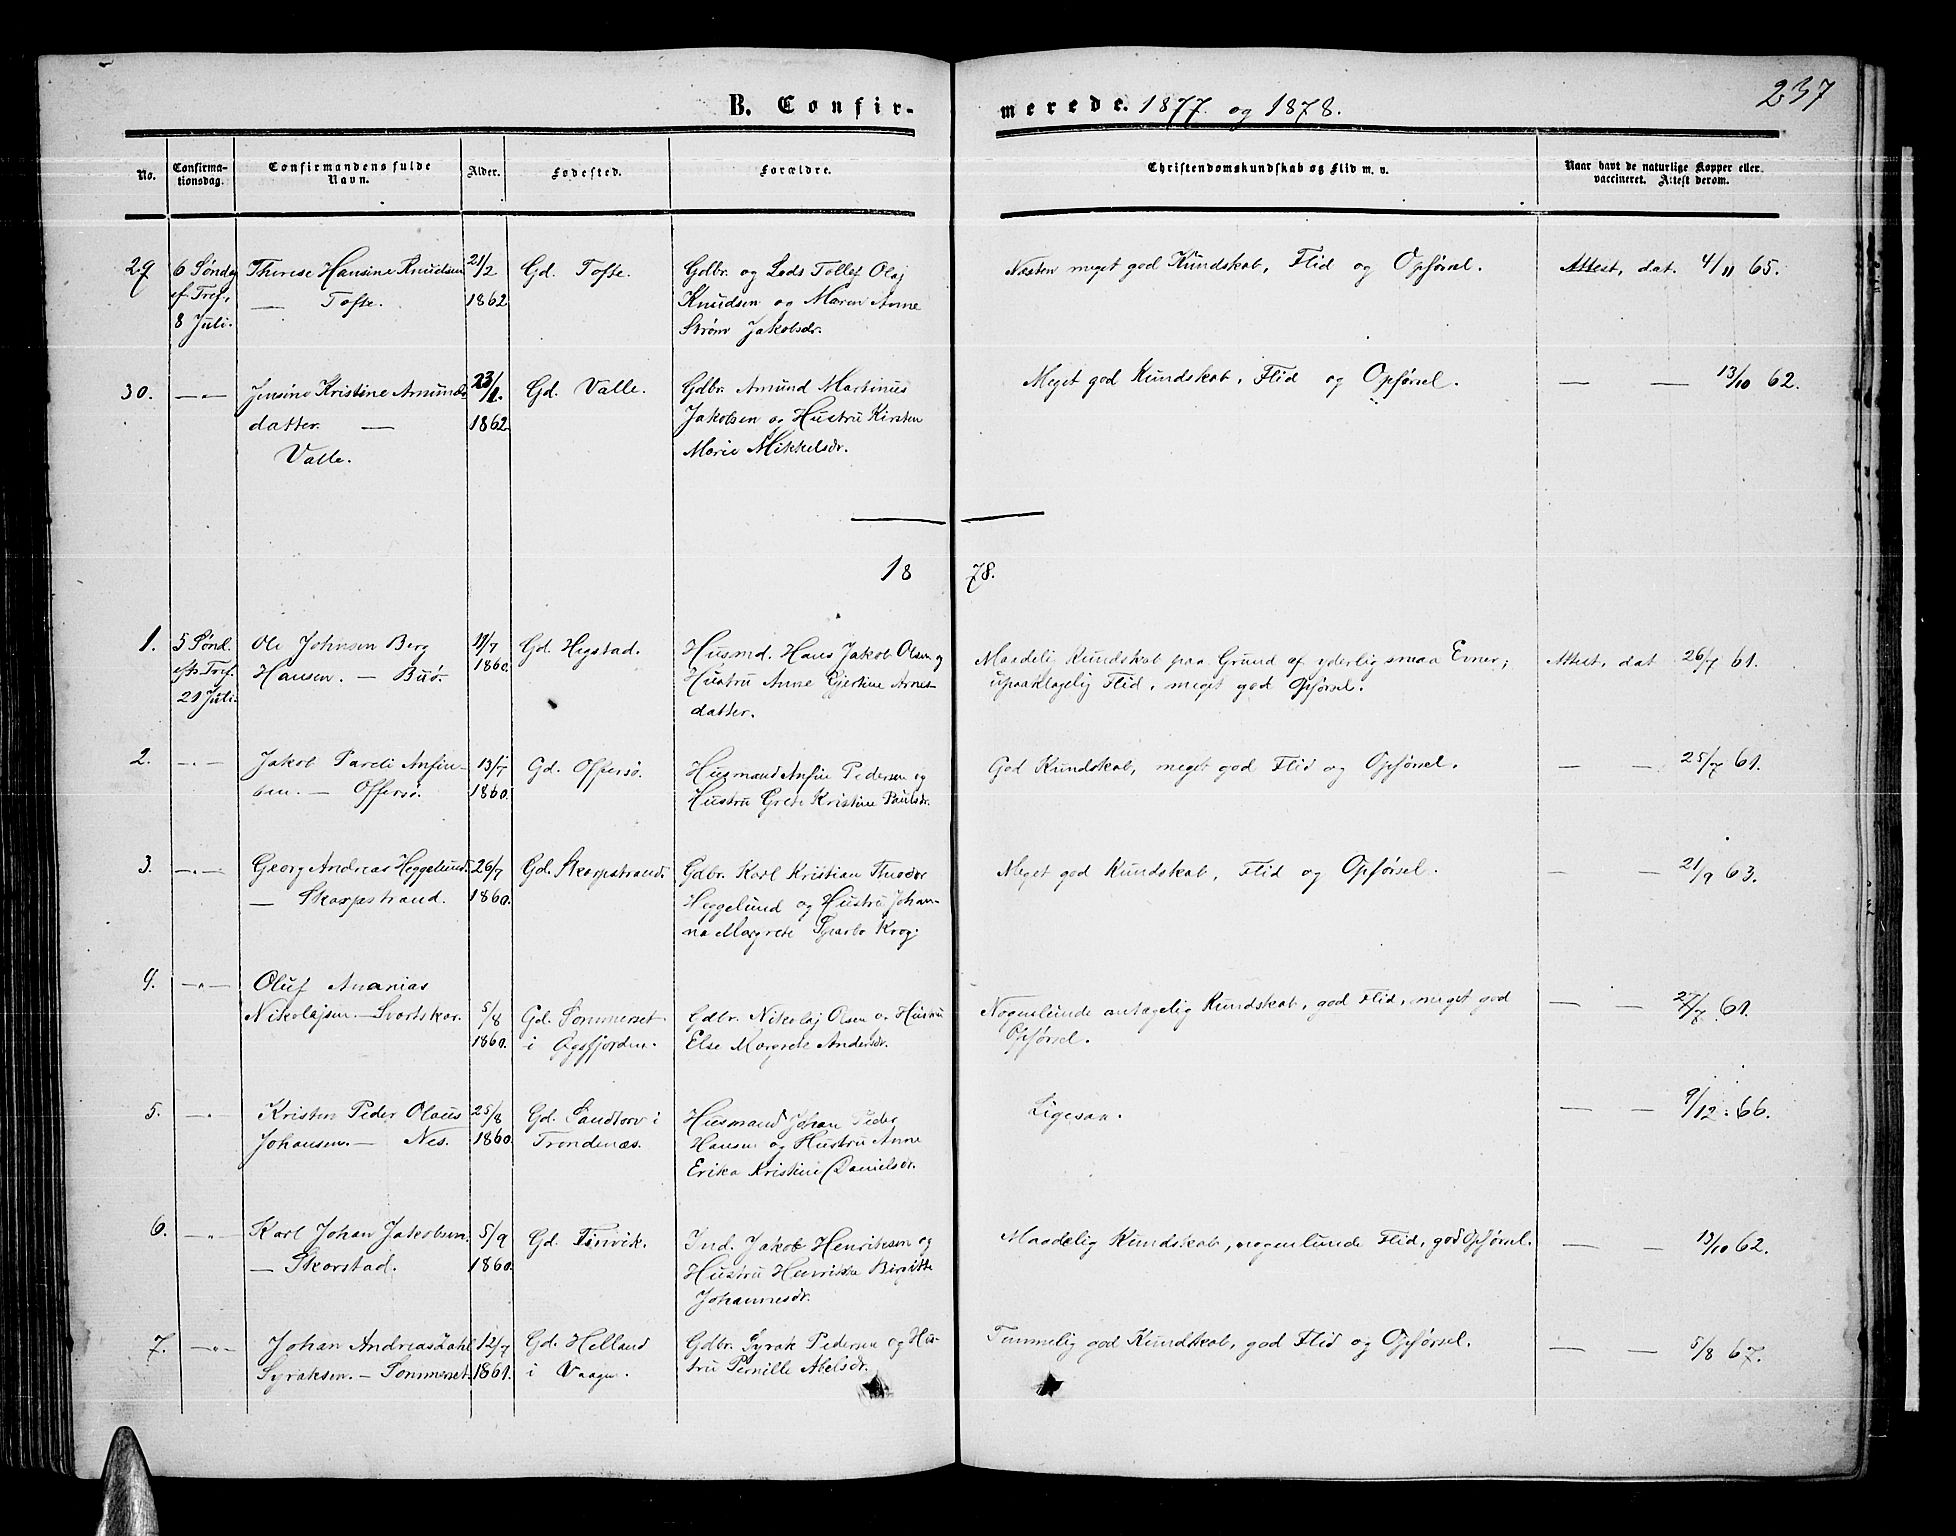 237
B. Confirmerede. 1877. og 1878.
No.
Confirma-
tionsdag.
Confirmandens fulde
Navn.
Alder.
Fødested.
Forældre.
Christendomskundskab og Flid m. v.
Naar havt de naturlige Kopper eller
vaccineret. Attest derom.
29 6 Sønd. Therese Hansine Knudsen 21/2 Gd. Tofte. Gdbr. og Lods Tollef Olaj Næsten meget god Kundskab, Flid og Opførsel. Attest, dat. 4/11 65.
ef. Tref. — Tofte. 1862 Knudsen og Maren Anne
8 Juli. Strøm Jakobsdr.
30. —„— Jensine Kristine Amunds- 23/1. Gd. Valle. Gdbr. Amund Martinus Meget god Kundskab, Flid og Opførsel. — — 13/10 62.
datter. — 1862. Jakobsen og Hustru Kirsten
Valle. Marie Mikkelsdr.
1878.
1. 5 Sønd. Ole Johnsen Berg 11/7 Gd. Hegstad. Husmd. Hans Jakob Olsen og Maadelig Kundskab paa Grund af yderlig smaa Evner; Attest, dat 26/7 61.
eft. Tref. Hansen. — Buø. 1860. Hustru Anne Gjertine Arnes- upaaklagelig Flid, meget god Opførsel.
21 Juli. datter.
2. —„— Jakob Pareli Anfin- 13/7 Gd. Offersø. Husmand Anfin Pedersen og God Kundskab, meget god Flid og Opførsel. — — 25/7 61.
sen. — Offersø. 1860. Hustru Grete Kristine Paulsdr.
3. —„— Georg Andreas Heggelund. 26/7 Gd. Skarpstrand. Gdbr. Karl Kristian Theodor Meget god Kundskab, Flid og Opførsel. — — 21/9 63.
— Skarpstrand. 1860. Heggelund og Hustru Johan-
na Margrete Krog.
4. —„— Oluf Ananias
Nikolajsen — Svartskar. 5/8 Gd. Sommerset Gdbr. Nikolaj Olsen og Hustru Nogenlunde antagelig Kundskab, god Flid, meget god — — 27/7 61.
1860. i Øgsfjorden. Else Margrete Andersdr. Opførsel.
5. —„— Kristen Peder Olaus 25/8 Gd. Sandtorv i Husmand Johan Peder Ligesaa. — — 9/12. 66.
Johansen. — Nes. 1860. Trondenæs. Hansen og Hustru Anne
Erika Kristine Danielsdr.
6. —„— Karl Johan Jakobsen. 5/9 Gd. Finvik. Ind. Jakob Henriksen og Maadelig Kundskab, nogenlunde Flid, god Opførsel. — — 13/10 62.
— Skarstad. 1860. Hustru Henrikke Birgitte
Johannesdr.
7. —„— Johan Andreas Dahl 12/7 Gd. Helland Gdbr. Syrak Pedersen og Hu- Temmelig god Kundskab, god Flid og Opførsel. — — 5/8 67.
Syraksen. — Sommerset. 1861. i Vaagen. stru Pernille Abelsdr.